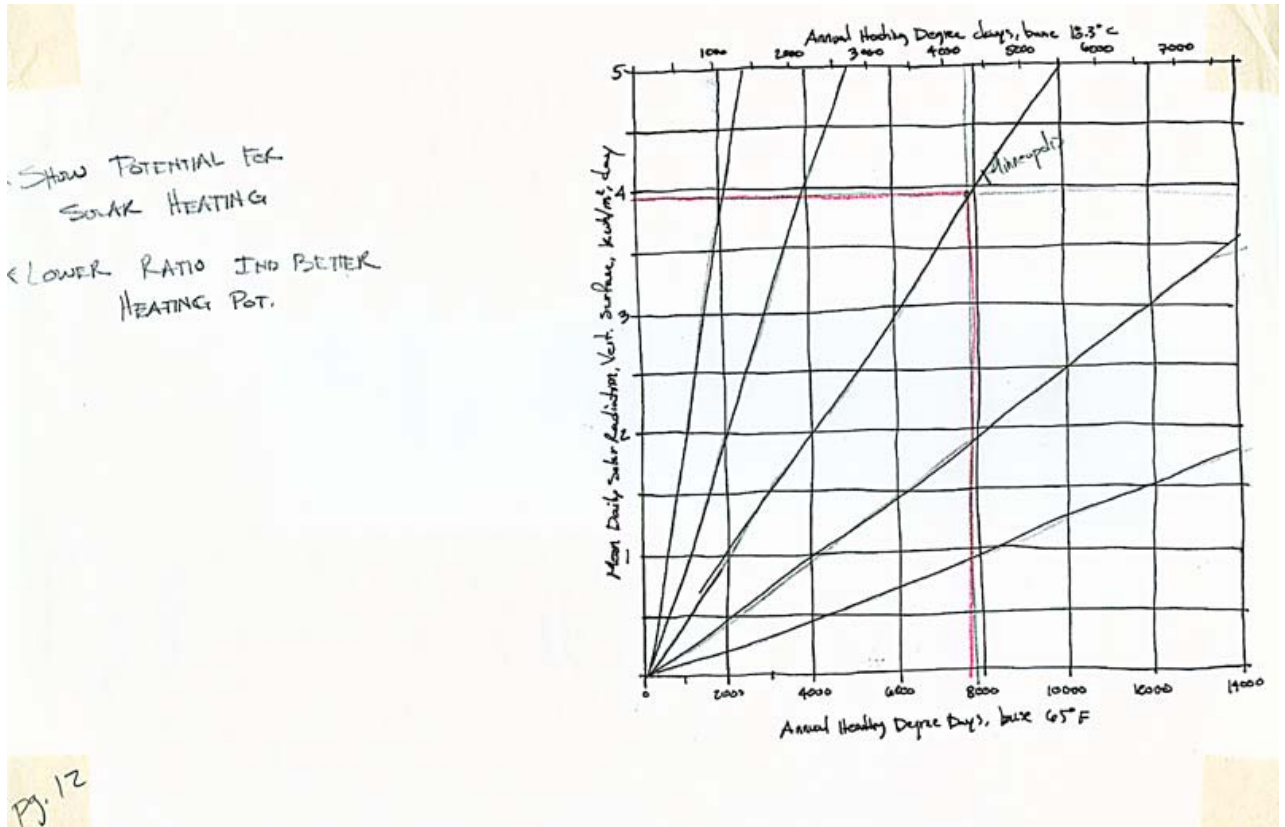 . SHOW POTENTIAL FOR
SOLAR HEATING
< LOWER RATIO IND BETTER
HEATING POT.
Annual Heating Degree days, base 18.3° C
1000 2000 3000 4000 5000 6000 7000
5
4
3
2
1
Mean Daily Solar Radiation, Vert. Surface, kwh/m², day
Minneapolis
0 2000 4000 6000 8000 10000 12000 14000
Annual Heating Degree Days, base 65° F
pg. 12